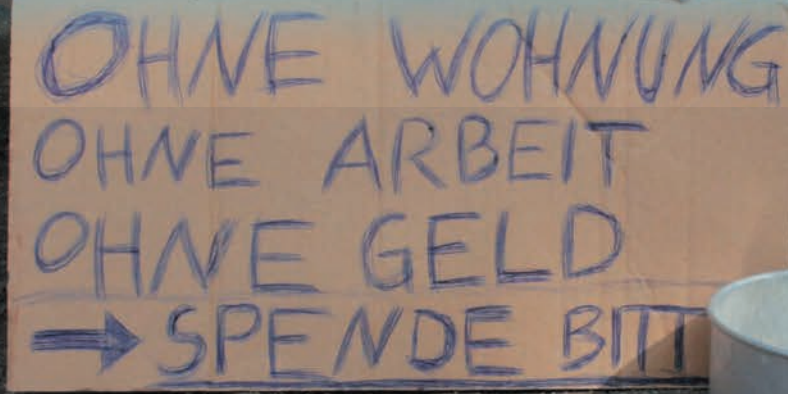 OHNE WOHNUNG
OHNE ARBEIT
OHNE GELD
→ SPENDE BITT